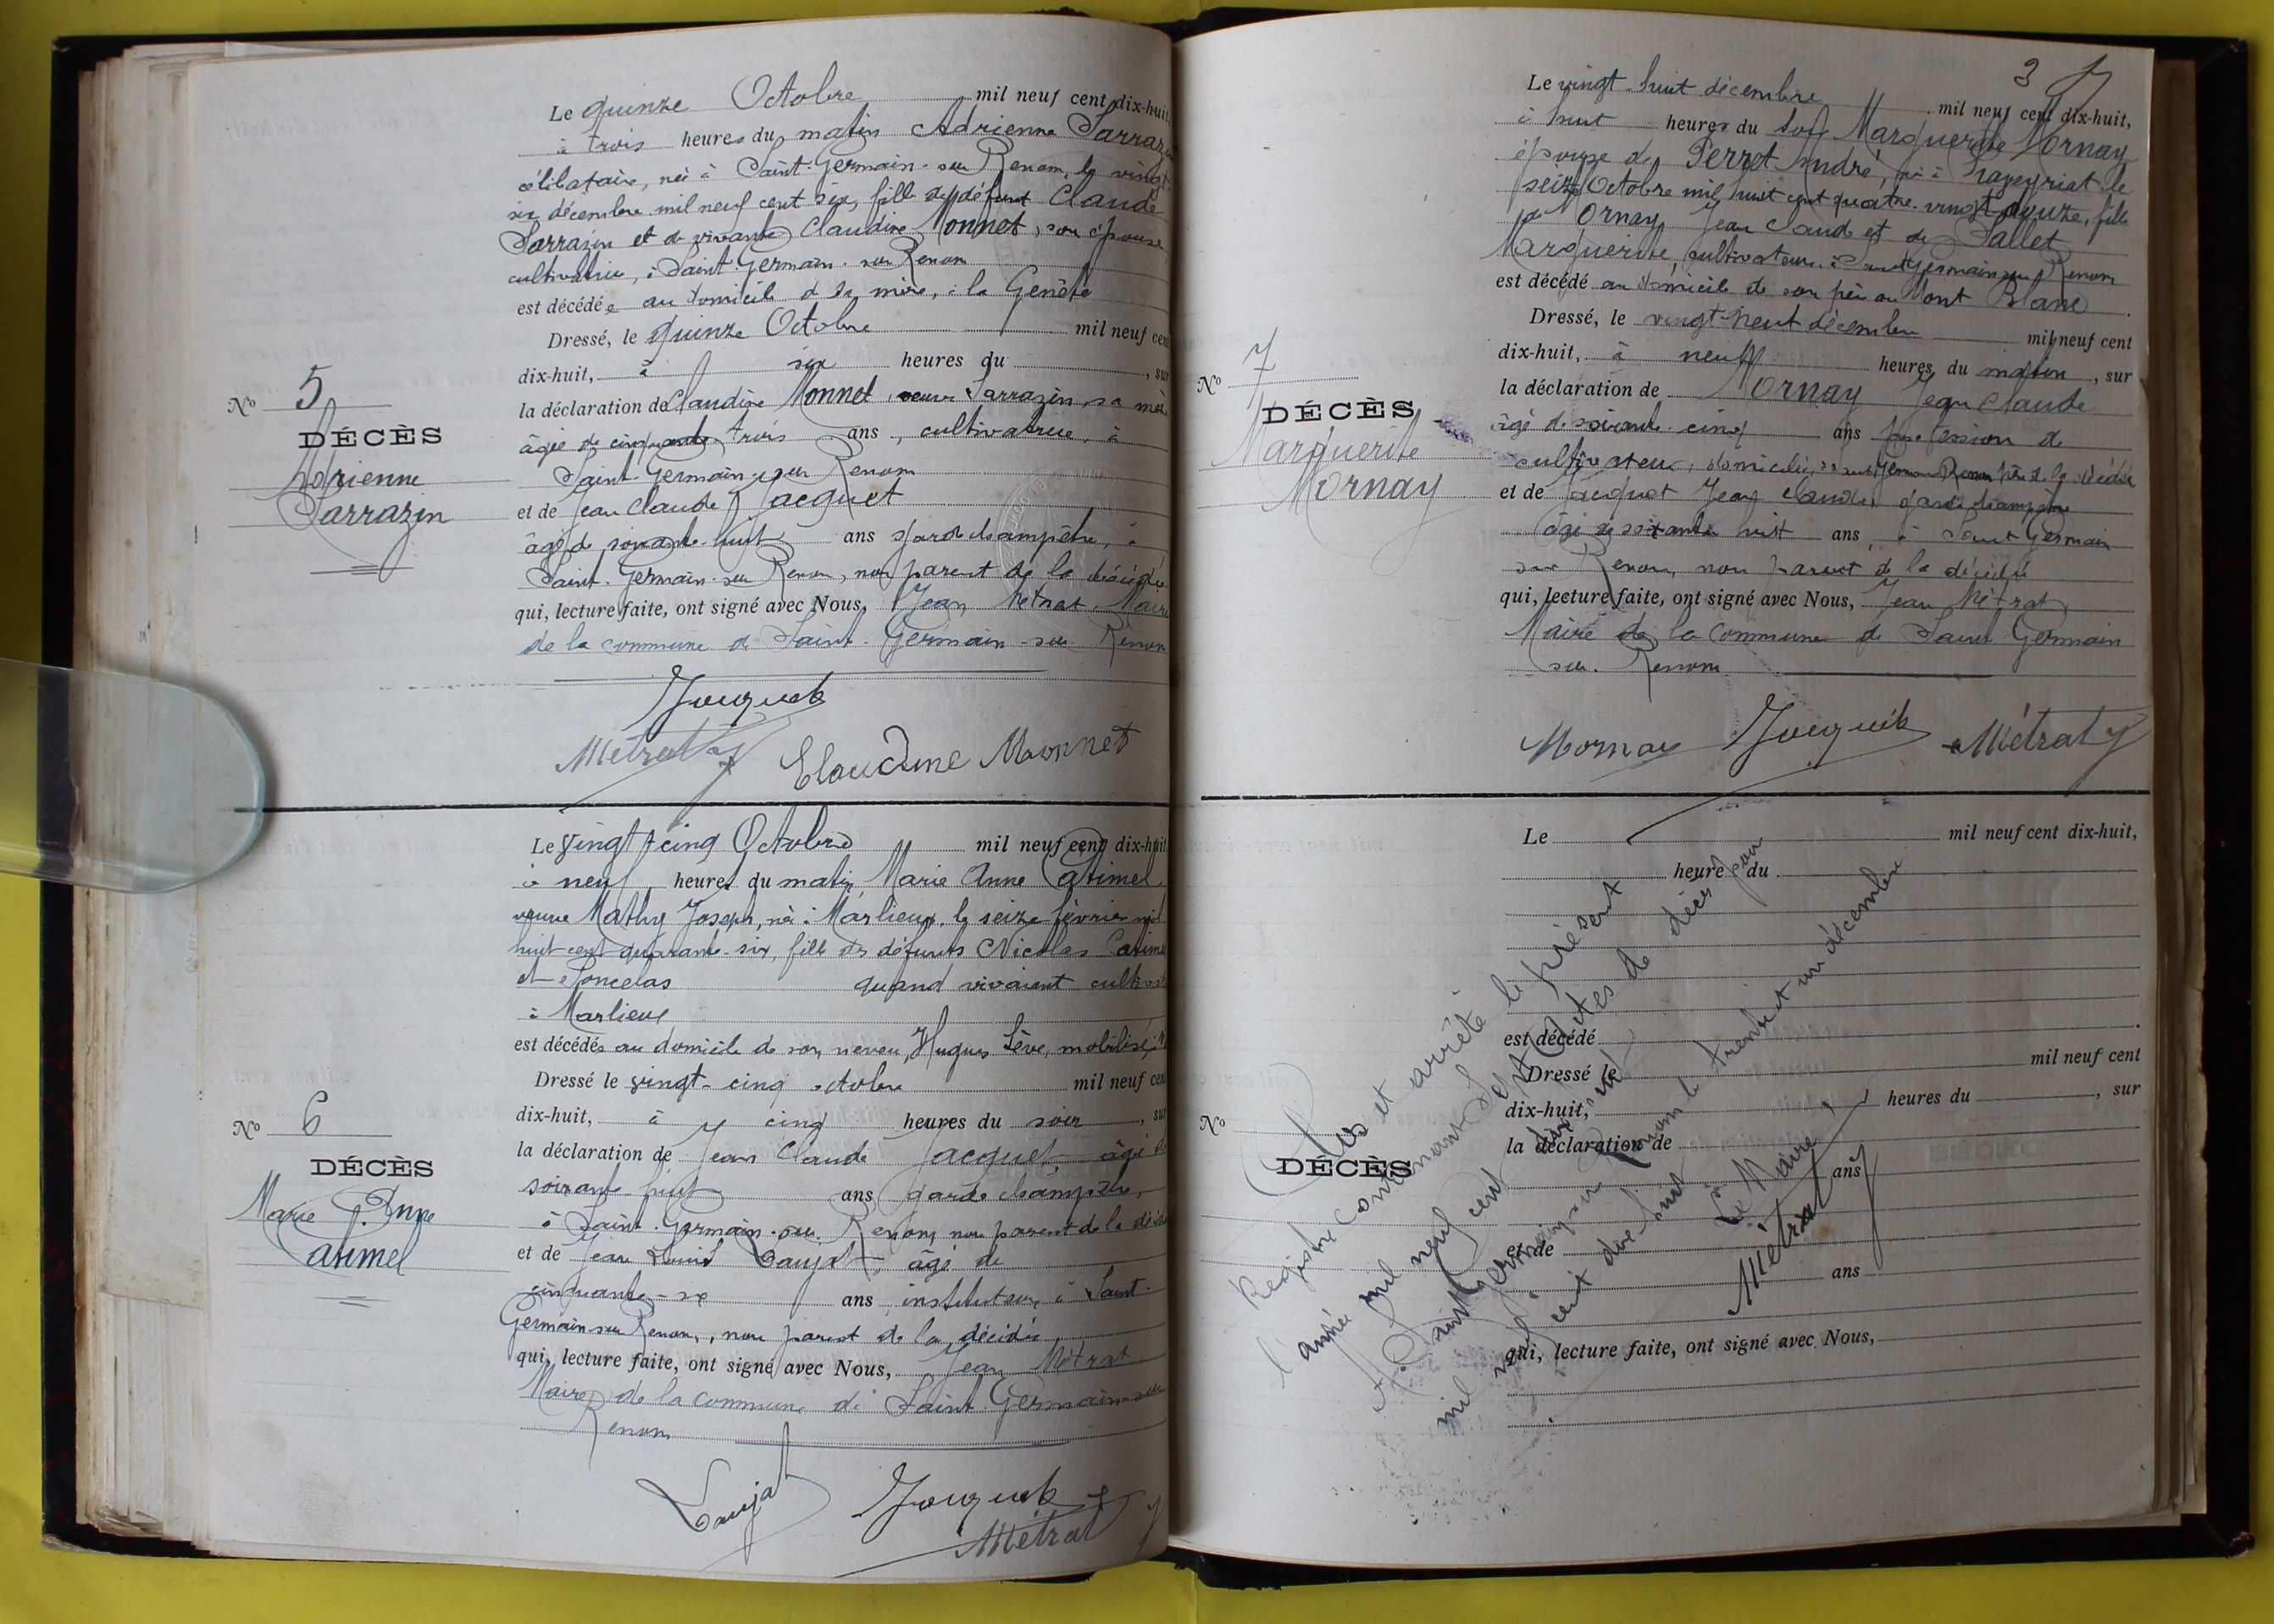 Le quinze Octobre mil neuf cent dix-huit
à trois heures du matin Adrienne Sarrazin
célibataire, née à Saint-Germain-sur Renom, le vingt-
six décembre mil neuf cent six, fille de défunt Claude
Sarrazin et de vivante Claudine Monnet, son épouse
cultivatrice, à Saint-Germain-sur Renom
est décédée au domicile de sa mère, à la Genête
Dressé, le quinze Octobre mil neuf cent
dix-huit, à six heures du , sur
la déclaration de Claudine Monnet, veuve Sarrazin, sa mère
âgée de cinquante trois ans, cultivatrice, à
Saint-Germain-sur Renom
et de Jean Claude Jacquet
âgé de soixante-huit ans garde champêtre, à
Saint-Germain-sur Renom, non parent de la décédée
qui, lecture faite, ont signé avec Nous, Jean Métrat Maire
de la commune de Saint-Germain-sur Renom
No 5
DÉCÈS
Adrienne
Sarrazin
Jacquet
Métrat Claudine Monnet
Le vingt cinq Octobre mil neuf cent dix-huit
à neuf heures du matin Marie Anne Catimel
veuve Mathy Joseph, née à Marlieux, le seize février mil
huit cent quarante-six, fille des défunts Nicolas Catimel
et Poncelas quand vivaient cultivat
à Marlieux
est décédée au domicile de son neveu, Hugues Sève, mobilisé,
Dressé le vingt-cinq octobre mil neuf cent
dix-huit, à cinq heures du soir , sur
la déclaration de Jean Claude Jacquet, âgé de
soixante huit ans garde champêtre,
à Saint-Germain-sur Renom, non parent de la décédée
et de Jean Louis Laujat, âgé de
cinquante-six ans instituteur à Saint-
Germain-sur Renom, non parent de la décédée,
qui, lecture faite, ont signé avec Nous, Jean Métrat
Maire de la commune de Saint-Germain-sur
Renom
No 6
DÉCÈS
Marie Anne
Catimel
Laujat Jacquet
Métrat
3
Le vingt-huit décembre mil neuf cent dix-huit,
à huit heures du soir Marguerite Mornay
épouse de Perret André, née à Prayeyriat le
seize Octobre mil huit cent quatre-vingt douze, fille
de Mornay Jean Claude et de Pallet
Marguerite, cultivateurs à Saint Germain sur Renom
est décédé au domicile de son père au Mont Blanc
Dressé, le vingt-neuf décembre mil neuf cent
dix-huit, à neuf heures du matin, sur
la déclaration de Mornay Jean Claude
âgé de soixante-cinq ans profession de
cultivateur, domicilié à Saint Germain Renom père de la décédée
et de Jacquet Jean Claude, garde champêtre
âgé de soixante huit ans, à Saint Germain
sur Renom, non parent de la décédée
qui, lecture faite, ont signé avec Nous, Jean Métrat
Maire de la commune de Saint Germain
sur Renom
No 7
DÉCÈS
Marguerite
Mornay
Mornay Jacquet Métrat
Le mil neuf cent dix-huit,
heure du
est décédé
Dressé le mil neuf cent
dix-huit, heures du , sur
la déclaration de
ans
et de
ans
qui, lecture faite, ont signé avec Nous,
No
DÉCÈS
Clos et arrêté le présent
Registre contenant sept Actes de décès pour
l'année mil neuf cent dix huit
A Saint Germain sur Renom le trente et un décembre
mil neuf cent dix huit
Le Maire,
Métrat